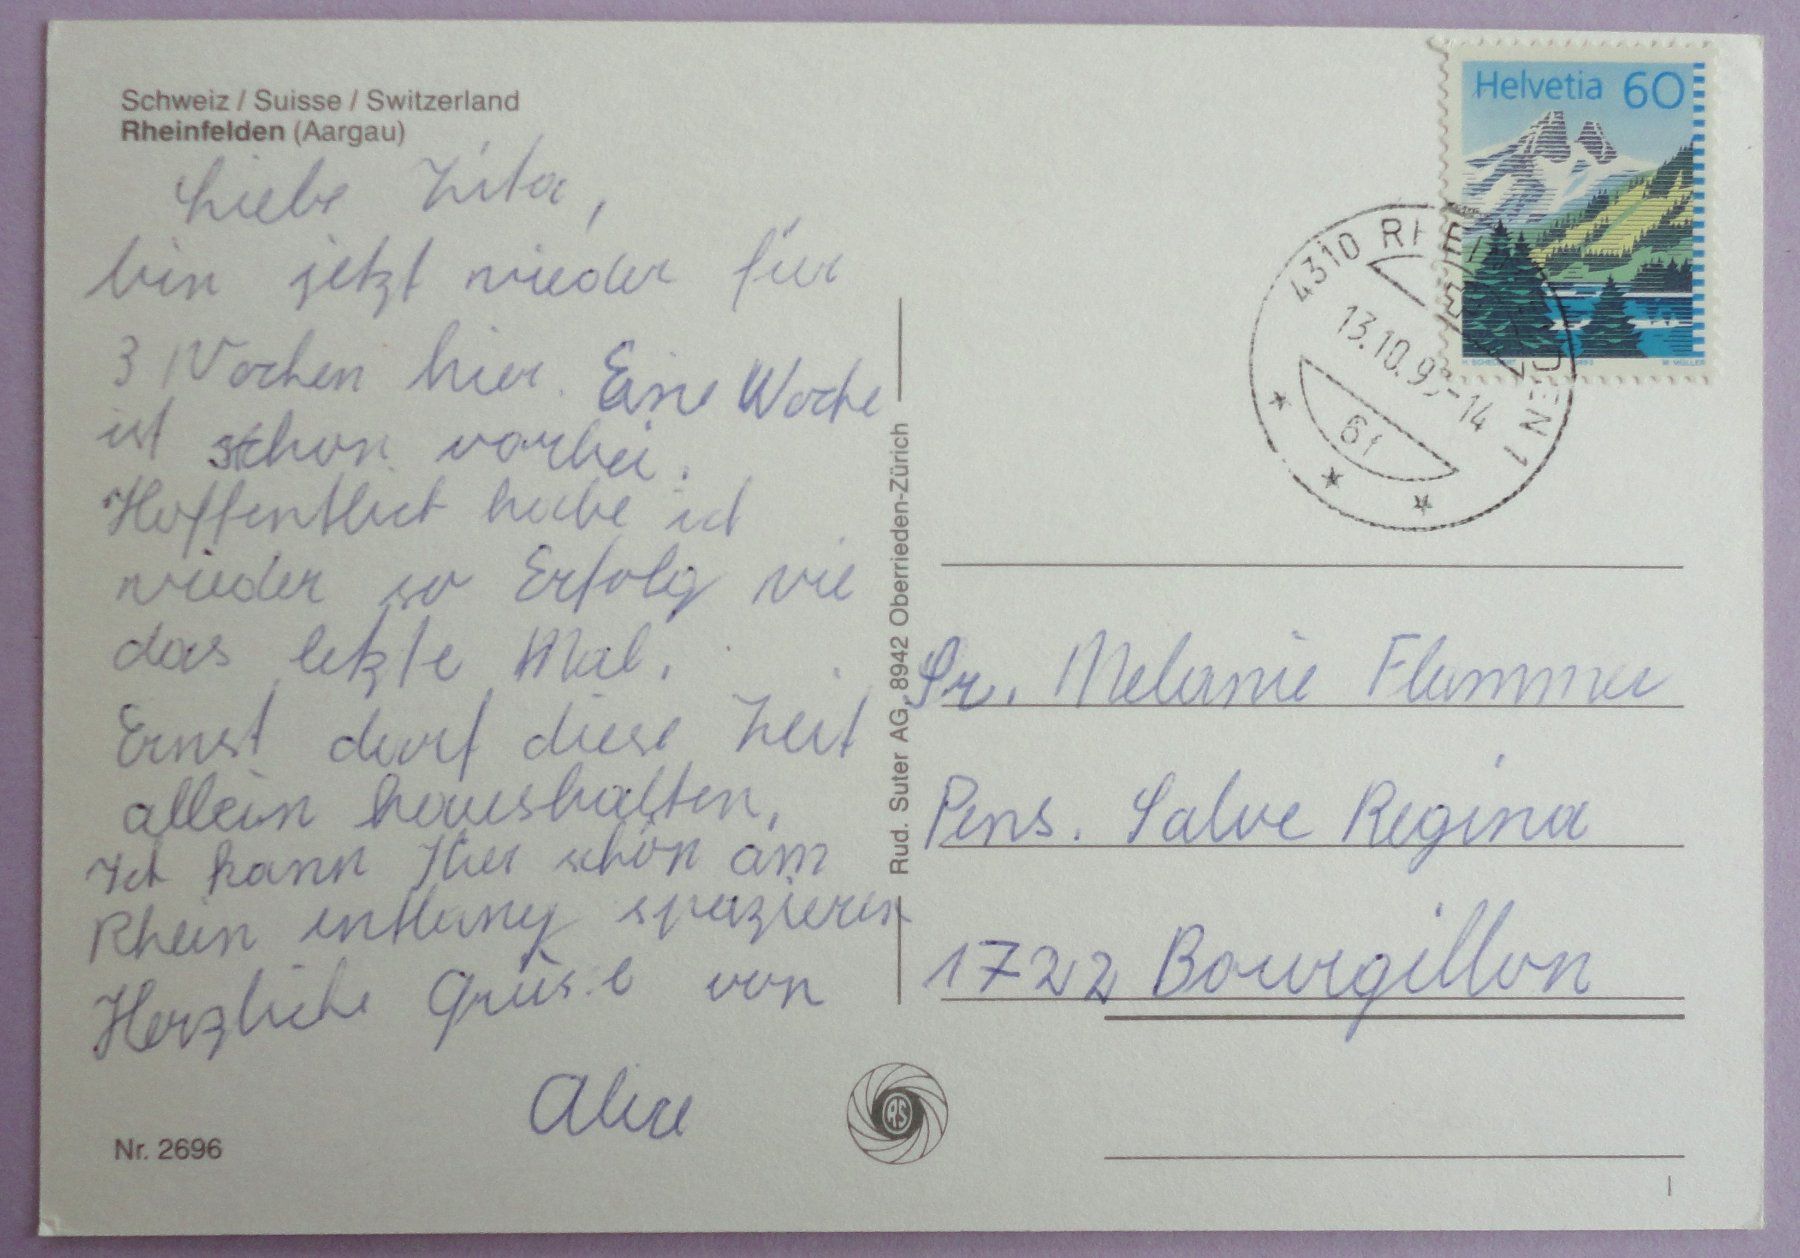 Schweiz / Suisse / Switzerland
Rheinfelden (Aargau)
Liebe Zita,
bin jetzt wieder für
3 Wochen hier. Eine Woche
ist schon vorbei.
Hoffentlich habe ich
wieder so Erfolg wie
das letzte Mal.
Ernst darf diese Zeit
allein haushalten,
Ich kann hier schön am
Rhein entlang spazieren
Herzliche Grüsse von
Alice
Nr. 2696
Rud. Suter AG, 8942 Oberrieden-Zürich
Helvetia 60
4310 RHEINFELDEN 1
13.10.93-14
61
RS
Sr. Melanie Flammer
Pens. Salve Regina
1722 Bourgillon